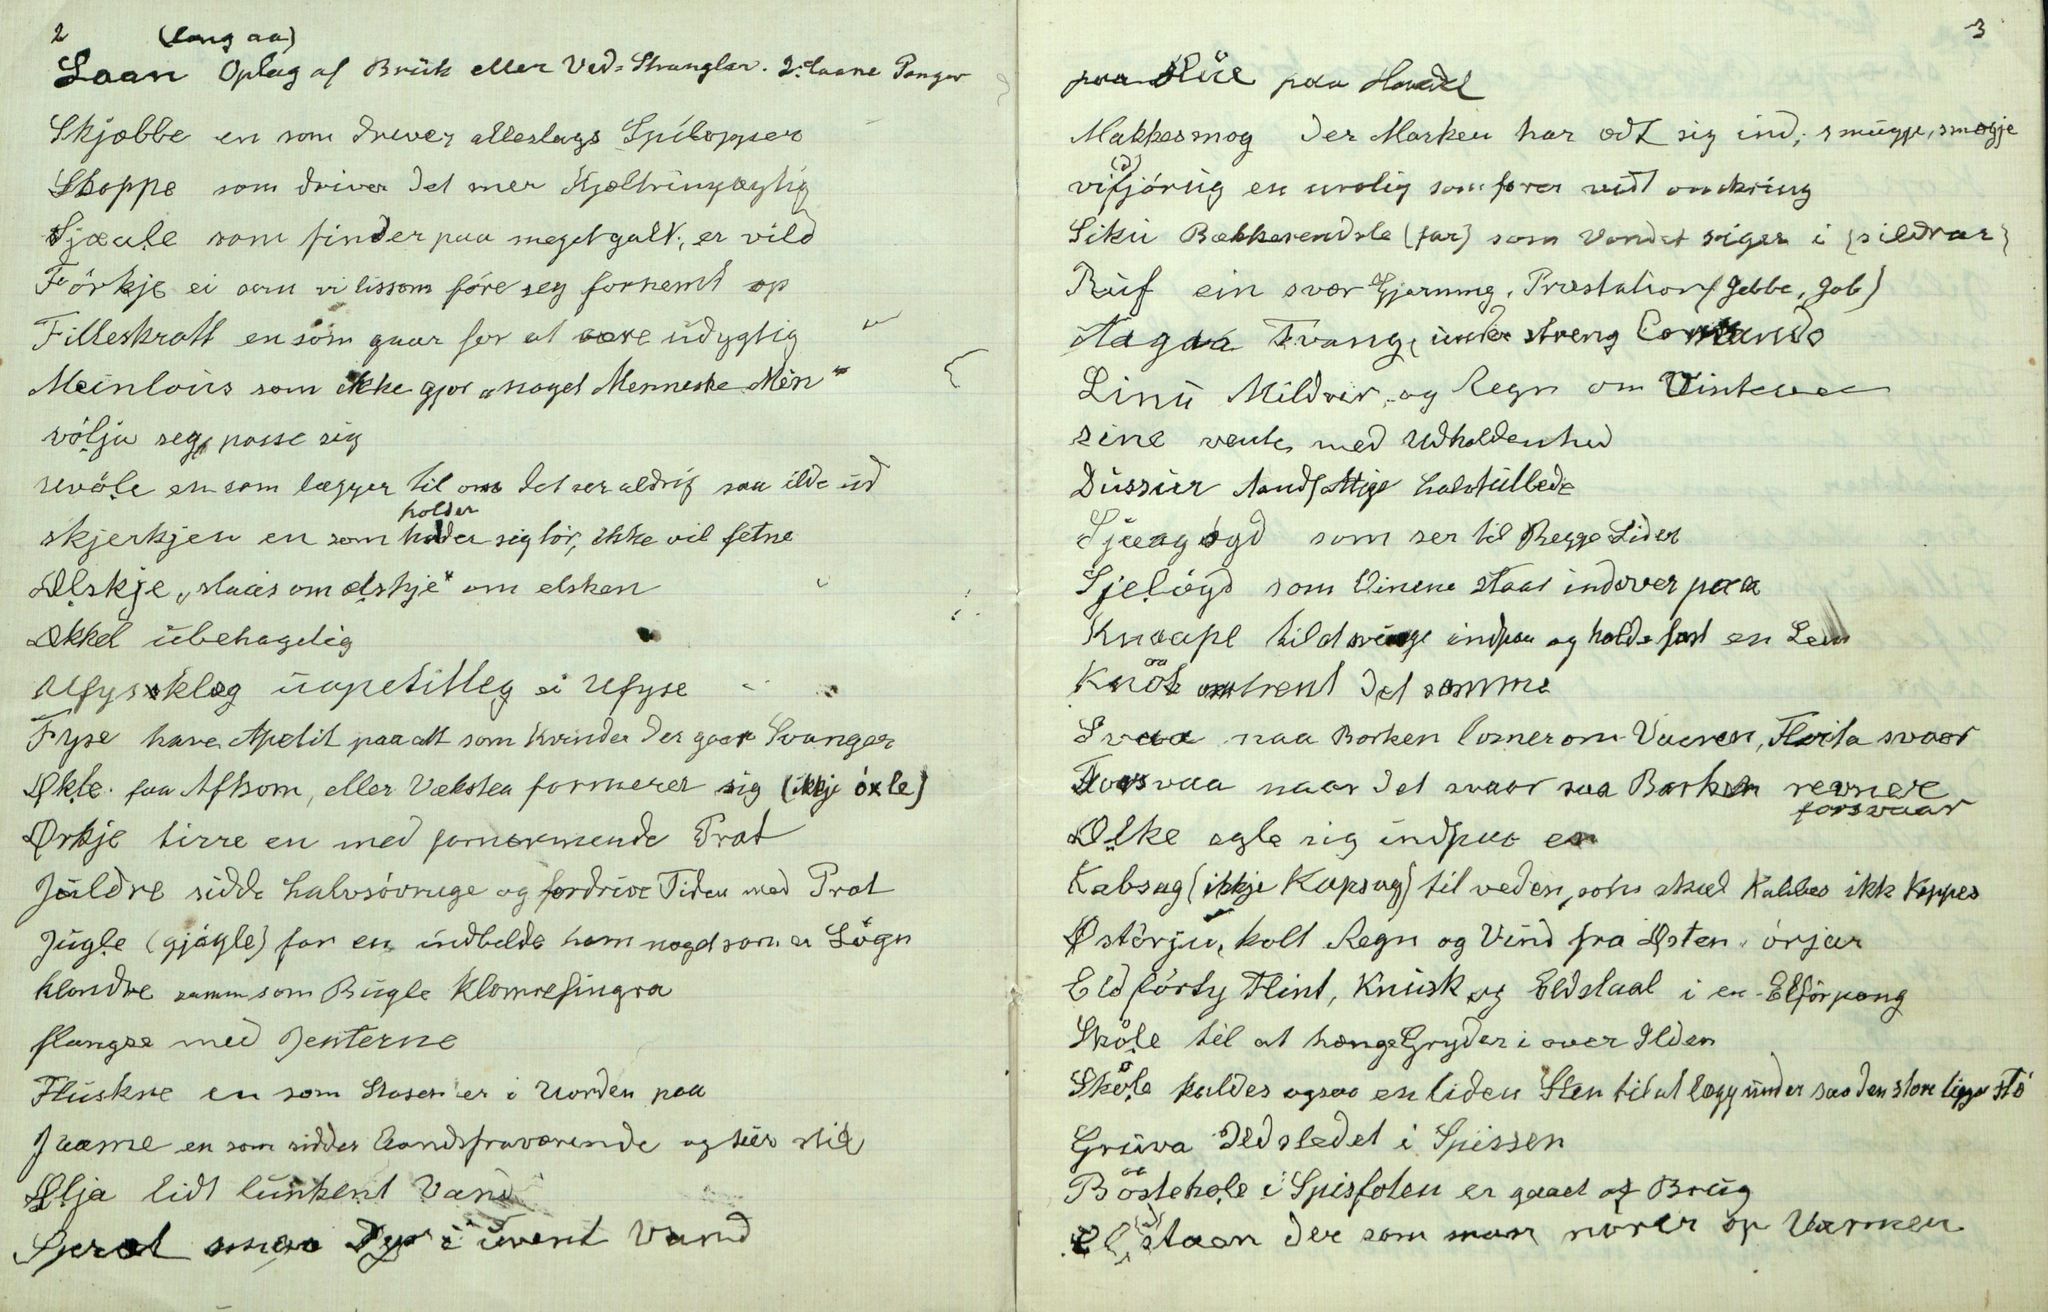 2 (lang aa)
Laan Oplag af Brük eller Ved-Strangler. 2. laane Penger
Skjæbbe en som drever alleslags Spilopper
Skoppe som driver det mer Kjæltringagtig
Sjæale som finder paa meget galt, er vild
Förkje ei som vi lissom före seg fornemt op
Filleskratt en som gaar for at være üdygtig
Meinloüs som ikke gjør "noget Menneske Mén"
völja seg, passe sig
revöle en som lægger til om det ser aldrig saa ilde üd
holder
skjerkjen en som holder sig tör, ikke vil fetne
Ælskje, "slaüs om ælskje" om elsken
Ækkel übehagelig
Ufyseklæg üapetitleg ei Ufyse
Fyse have Apetit paa alt som Kvinder der gaar Svanger
Økle. faa Afkom, eller Væksten formerer sig (ikkje öxle)
Ørkje tirre en med fornærmende Prat
Jüldre sidde halvsövnige og fordrive Tiden med Prat
Jügle (gjögle) for en, indbilde ham noget som er Lögn
klondre samm som Bügle Klomrefingra
flangse med Jenterne
Flüskne en som Stasen er i Uorden paa
Jaame en som sidder Aandsfraværende og tier stil
Ølja lidt lünkent Vand
Spræl smaa Dyr i ürent Vand
3
paa Hüe paa Hovedet
Makkesmog der Marken har ædt sig ind, smügge, smøgje
vi(d)fjörüg en urolig som farer vidt omkring
Sikü Bækkerendsle (far) som Vandet siger i (sildrar)
Rüf ein svær Gjerning, Præstation (Jebbe, Job)
Aagaa Tvang, ünder streng Comando
Linü Mildveir, og Regn om Vinteren
sine vente, med Udholdenhed
Düssür Aandsfattige halvtüllede
Sjæegögd som ser til Begge Sider
Sjelögd som Öinene staar indover paa
Knaape til at svinge indpaa og holde fast en Lem
Knöt omtrent det samme
Svaa naa Barken losner om Vaaren, Florta svaar
Forsvaa naar det svaar saa Barken revner
forsvaar
Ølke egle sig indpaa en
Kabsag (ikkje Kapsag) til veden, som skal Kabbes ikk Kappes
Østörju, kolt Regn og Vind fra Østen, örjar
Eldförty Flint, Knüsk og Eldstaal i en Elförpong
Sköle til at hænge Gryder i over Ilden
Sköle kaldes ogsaa en liden Sten til at lægg ünder saa den store ligger stö
Grüva Ildstedet i Spissen
Böstehole i Spisfoten er gaaet af Brüg
El(d)staan der som man nörer op Varmen